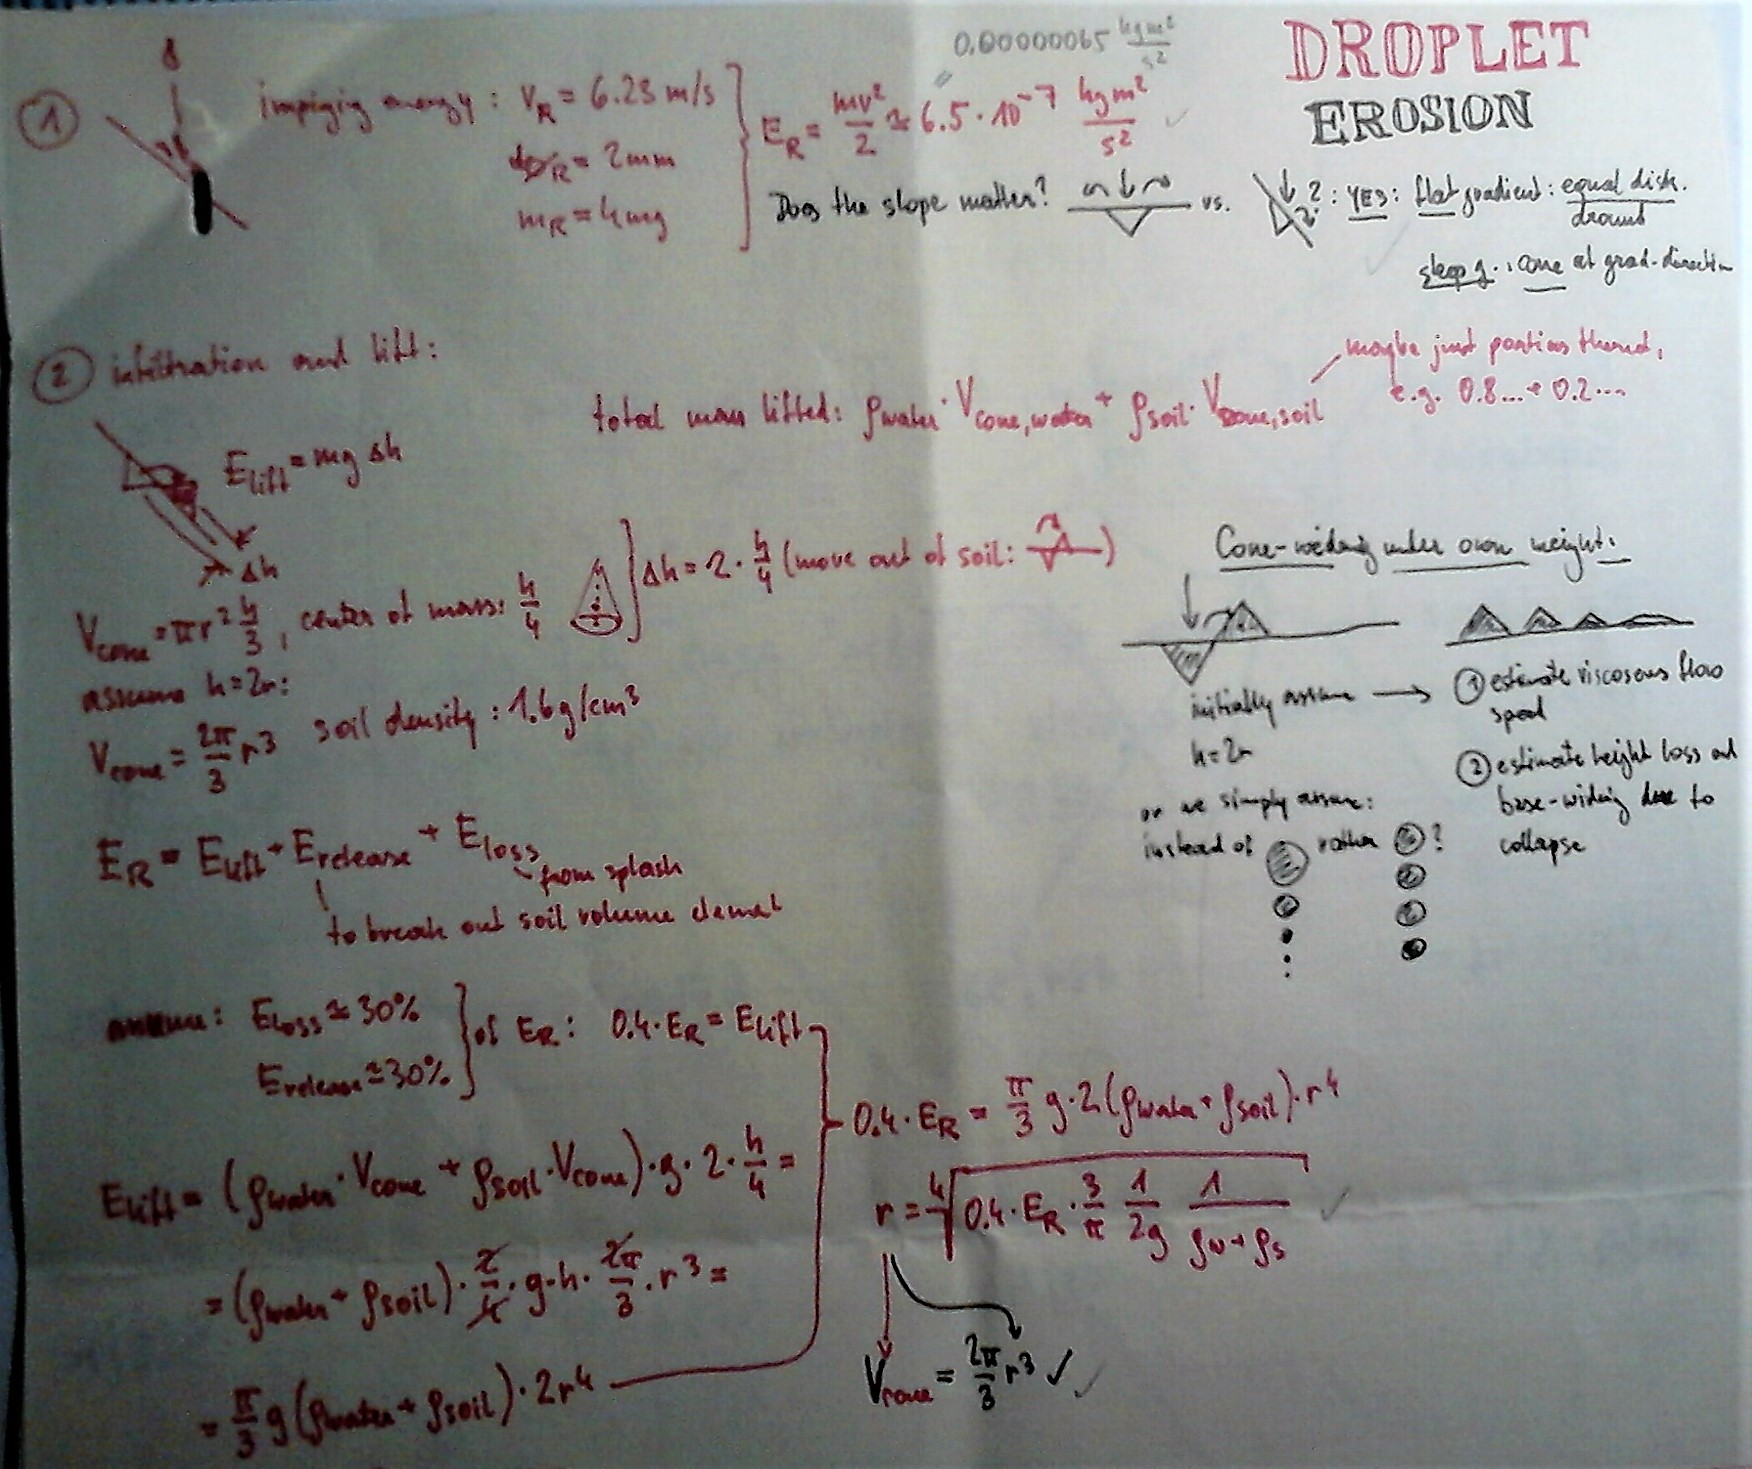 DROPLET
EROSION
0.00000065 kgm²/s²
① impiging energy: v_R = 6.23 m/s
d_R = 2mm
m_R = 4mg
E_R = mv²/2 ≈ 6.5·10⁻⁷ kg m²/s² ✓
Does the slope matter? vs. ?: YES: flat gradient: equal distr. around
steep g.: cone at grad-direction
② infiltration and lift:
total mass lifted: ρwater·Vcone,water + ρsoil·Vcone,soil
maybe just portions thereof,
e.g. 0.8... + 0.2....
Elift = mg Δh
Δh
Vcone = πr² h/3, center of mass: h/4 } Δh = 2·h/4 (move out of soil: )
assume h=2r:
Vcone = 2π/3 r³ soil density: 1.6g/cm³
E_R = Elift + Erelease + Eloss
from splash
to break out soil volume element
assume: Eloss ≈ 30%
Erelease ≈ 30%
} of E_R: 0.4·E_R = Elift
Elift = (ρwater·Vcone + ρsoil·Vcone)·g·2·h/4 =
= (ρwater + ρsoil)·2/4·g·h·2π/3·r³ =
= π/3 g(ρwater + ρsoil)·2r⁴
0.4·E_R = π/3 g·2(ρwater + ρsoil)·r⁴
r = ⁴√(0.4·E_R·3/π 1/2g 1/ρw+ρs) ✓
Vcone = 2π/3 r³ ✓ ✓
Cone-widening under own weight:
initially assume →
h=2r
① estimate viscosous flow
speed
② estimate height loss and
base-widing due to
collapse
or we simply assume:
instead of rather ?